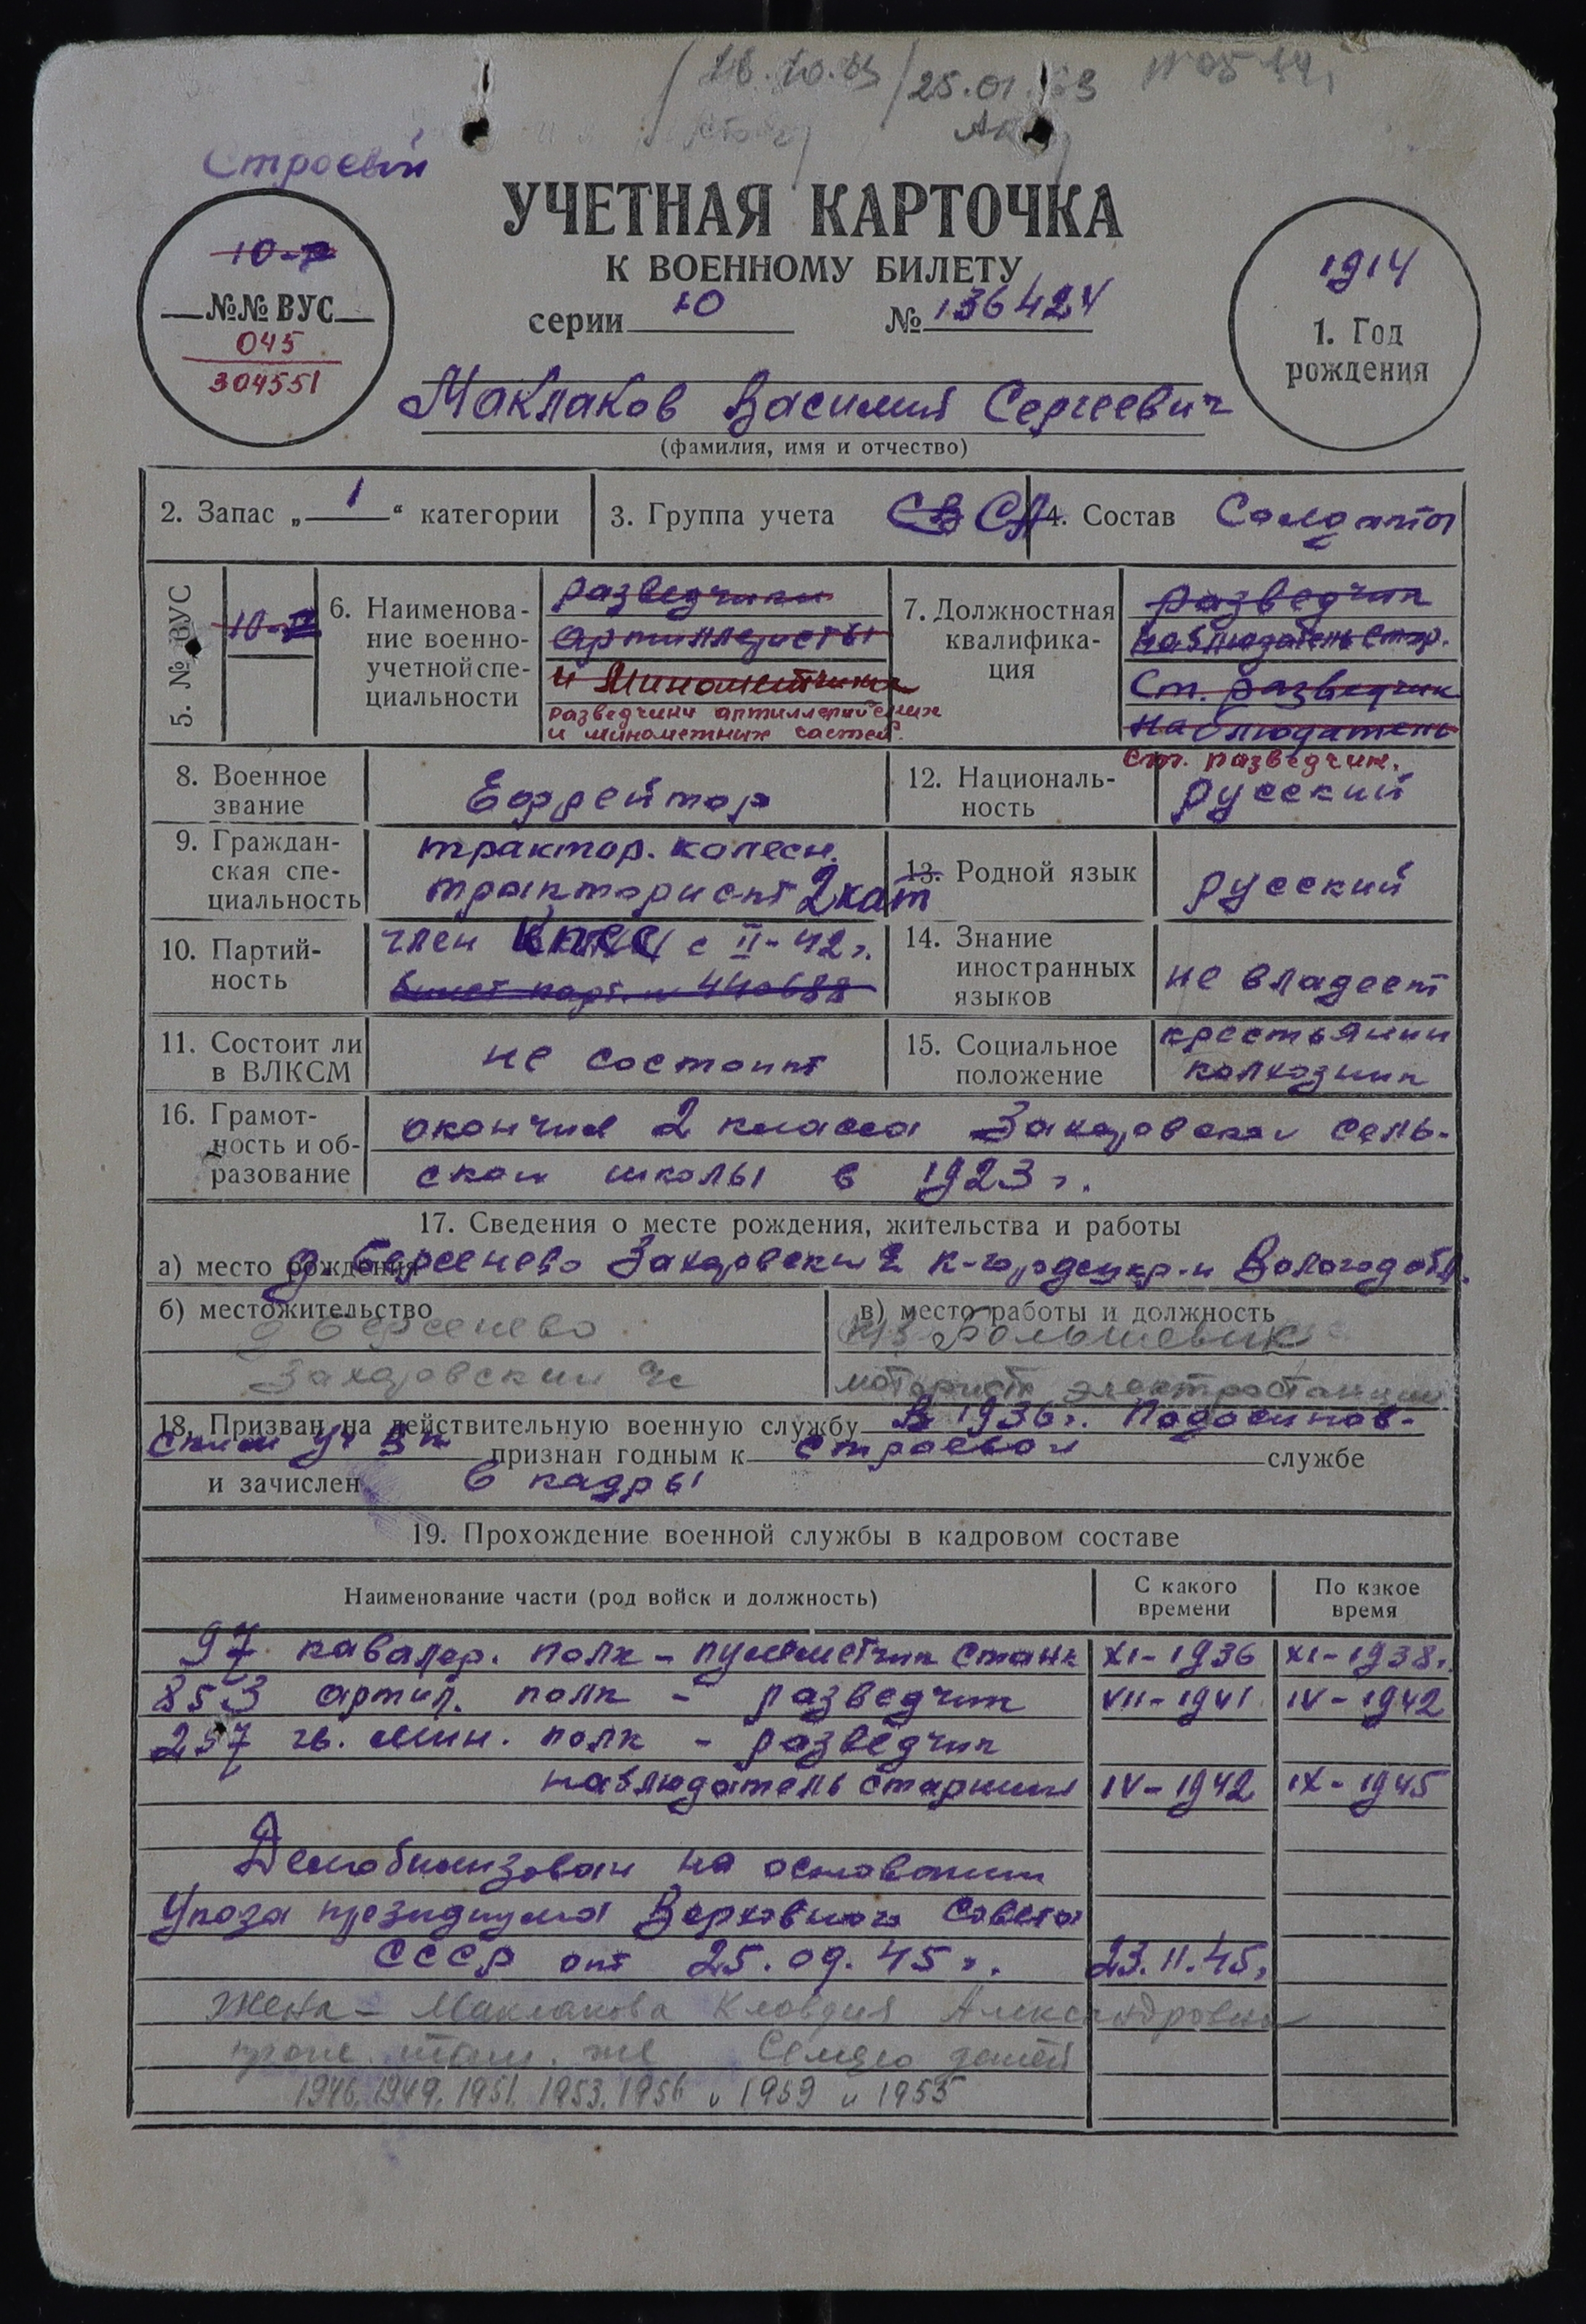 25.01.
Строевой
УЧЕТНАЯ КАРТОЧКА
К ВОЕННОМУ БИЛЕТУ
серии Ю № 136424
10-
№№ ВУС
045
304551
1914
1. Год
рождения
Маклаков Василий Сергеевич
(фамилия, имя и отчество)
2. Запас „ 1 “ категории
3. Группа учета СВ СА
4. Состав Солдаты
5. № ВУС
10-
6. Наименова-
ние военно-
учетной спе-
циальности
разведчики
артиллеристы
и минометчики
разведчики артиллерийских
и минометных частей.
7. Должностная
квалифика-
ция
разведчик
наблюдатель стар.
Ст. разведчик
наблюдатель
ст. разведчик.
8. Военное
звание
Ефрейтор
12. Националь-
ность
русский
9. Граждан-
ская спе-
циальность
трактор. колесн.
тракторист 2 кат
13. Родной язык
русский
10. Партий-
ность
член КПСС с II-42 г.
билет парт. № 440688
14. Знание
иностранных
языков
не владеет
11. Состоит ли
в ВЛКСМ
не состоит
15. Социальное
положение
крестьянин
колхозник
16. Грамот-
ность и об-
разование
окончил 2 класса Захаровской сель-
ской школы в 1923 г.
17. Сведения о месте рождения, жительства и работы
а) место рождения д. Берсенево Захаровский К-городецкр-н Вологод обл.
б) местожительство
д Берсенево
Захаровский
в) место работы и должность
Большевик
моторист электростанции
18. Призван на действительную военную службу В 1936 г. Подосинов-
ским признан годным к строевой службе
и зачислен в кадры
19. Прохождение военной службы в кадровом составе
Наименование части (род войск и должность)
С какого
времени
По какое
время
97 кавалер. полк - пулеметчик станк XI-1936 XI-1938 г.
853 артил. полк - разведчик VII-1941 IV-1942
257 гв. мин. полк - разведчик
наблюдатель старший IV-1942 IX-1945
Демобилизован на основании
Указа президиума Верховного Совета
СССР от 25.09.45 г. 23.11.45 г.
Жена - Маклакова Клавдия Александровна
прож. там же Семеро детей
1946, 1949, 1951, 1953, 1956 и 1959 и 1955